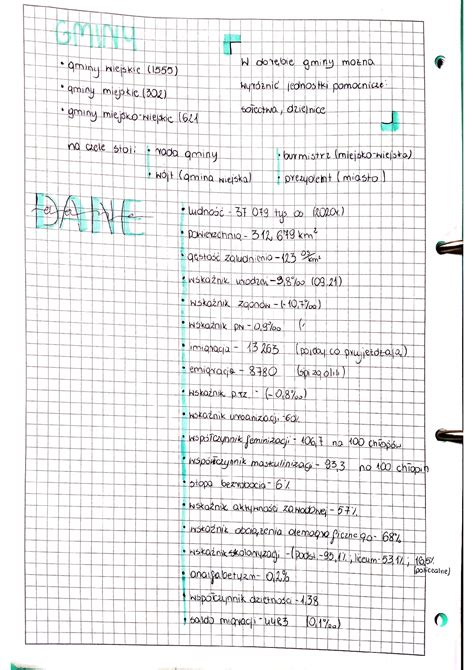 GMINY
• gminy wiejskie (1555)
• gminy miejskie (302)
• gminy miejsko-wiejskie (621
W obrębie gminy można
wyróżnić jednostki pomocnicze:
sołectwa, dzielnice
na czele stoi: • rada gminy
• wójt (gmina wiejska)
• burmistrz (miejsko-wiejska)
• prezydent (miasto)
DANE
• ludność - 37 079 tyś os (2020r)
• powierzchnia - 312,679 km²
• gęstość zaludnienia - 123 os/km²
• wskaźnik urodzeń - 9,8‰ (09.21)
• wskaźnik zgonów - (-10,7‰)
• wskaźnik pn - 0,9‰ (
• imigracja - 13 263 (polacy co przyjeżdżają)
• emigracja - 8780
• wskaźnik p rz. - (-0,8‰)
• wskaźnik urbanizacji - 60%
• współczynnik feminizacji - 106,7 na 100 chłopów
• współczynnik maskulinizacji - 93,3 na 100 chłopin
• stopa bezrobocia - 6%
• wskaźnik aktywności zawodowej - 57%
• wskaźnik obciążenia demograficznego - 68%
• wskaźnik skolaryzacji - (podst - 95,1%, liceum - 53,1%; 18,5% (policealne)
• analfabetyzm - 0,2%
• współczynnik dzietności - 1,38
• saldo migracji - 4483 (0,1‰)